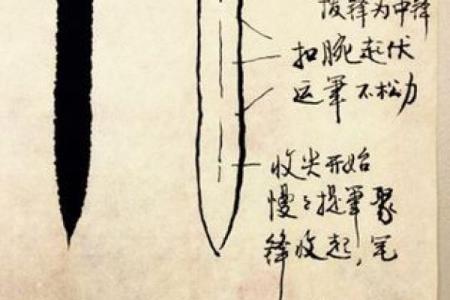 扳锋为中锋
扣腕起伏
运筆不松力
收尖开始
慢慢提筆聚
锋收起,笔